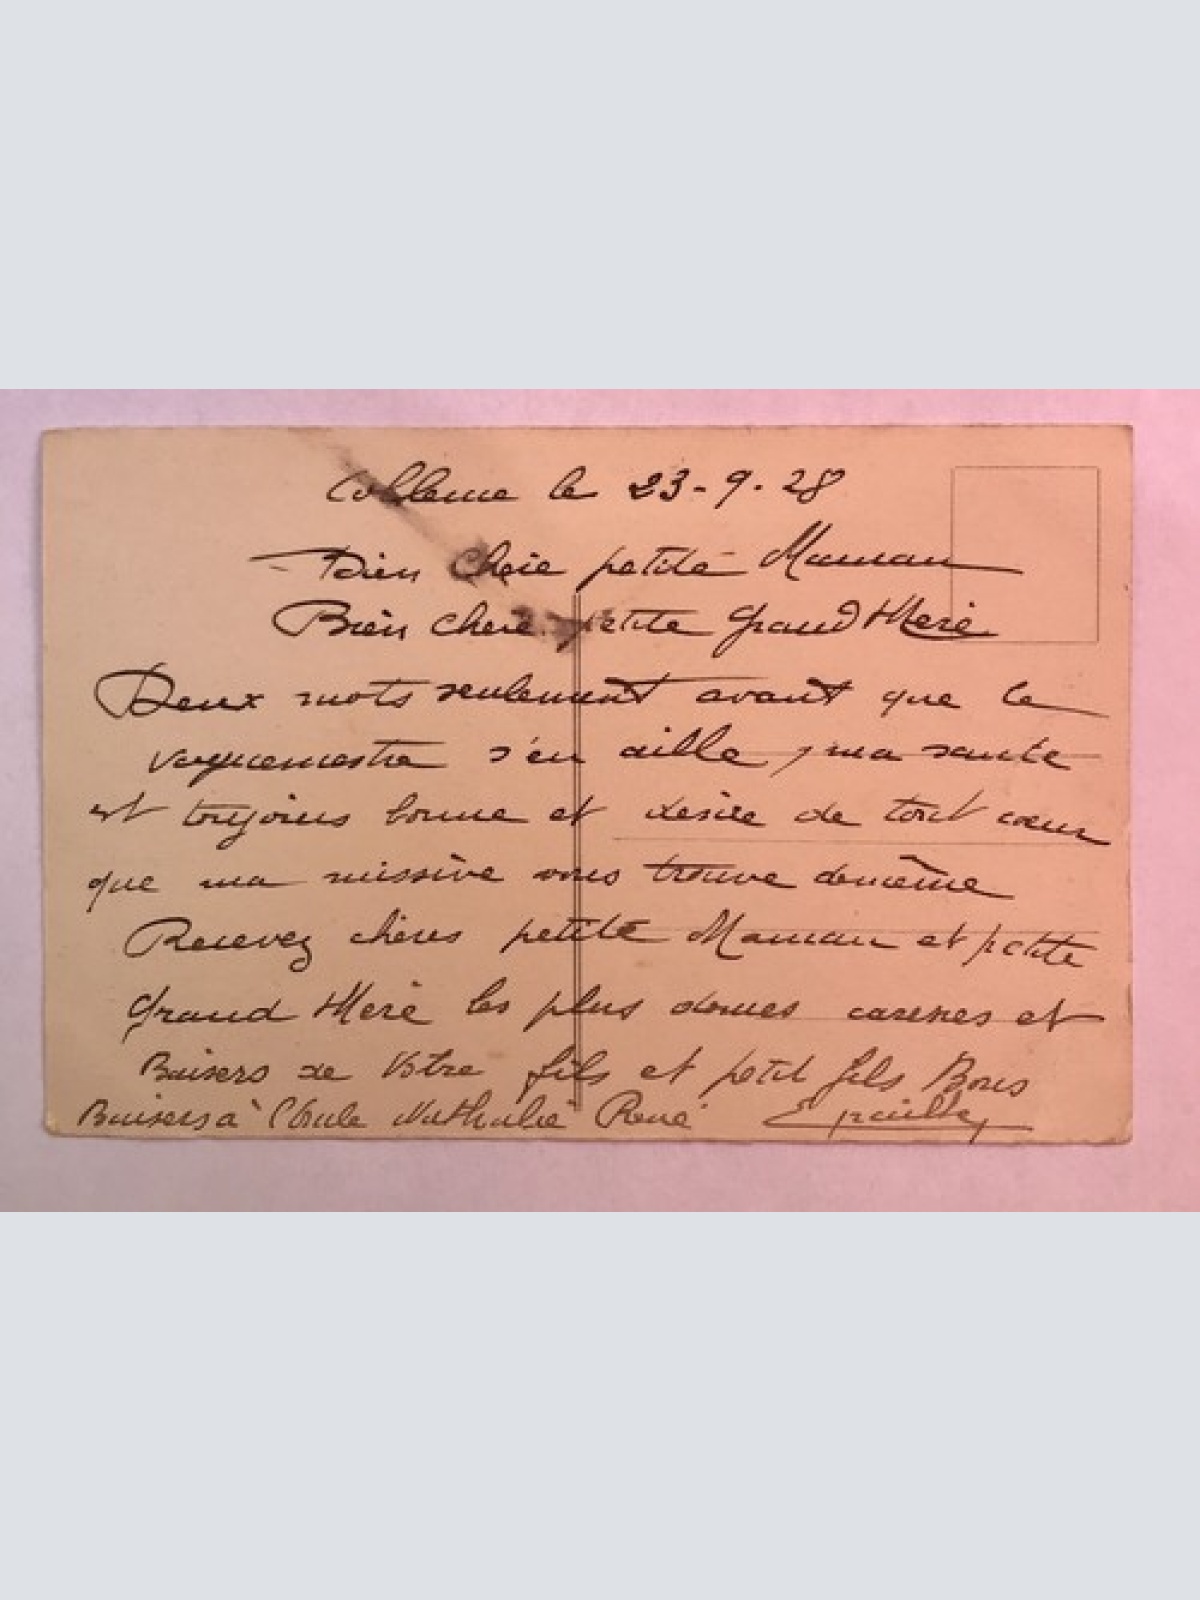 Coblence le 23-9-28
Bien Chère petite Maman
Bien chère petite Grand Mère
Deux mots seulement avant que le
vaguemestre s'en aille, ma santé
est toujours bonne et désire de tout cœur
que ma missive vous trouve demême
Recevez chères petite Maman et petite
Grand Mère les plus douces caresses et
Baisers de Votre fils et petit fils Bons
Baisers à Nathalie René